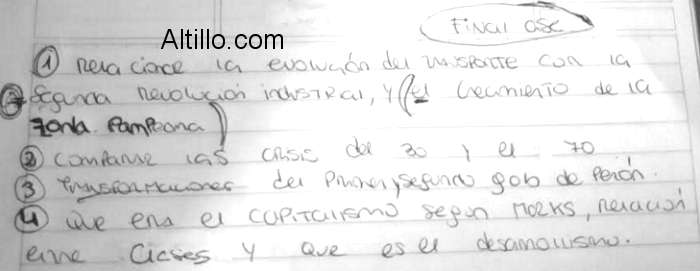 Final OSC
Altillo.com
① Relacione la evolución del transporte con la
segunda revolución industrial, y (el crecimiento de la
zona Pampeana)
② Compare las crisis del 30 y el 70
③ Transformaciones del Primer y segundo gob de Perón.
④ Que era el capitalismo según Marks, relación
entre clases y que es el desarrollismo.